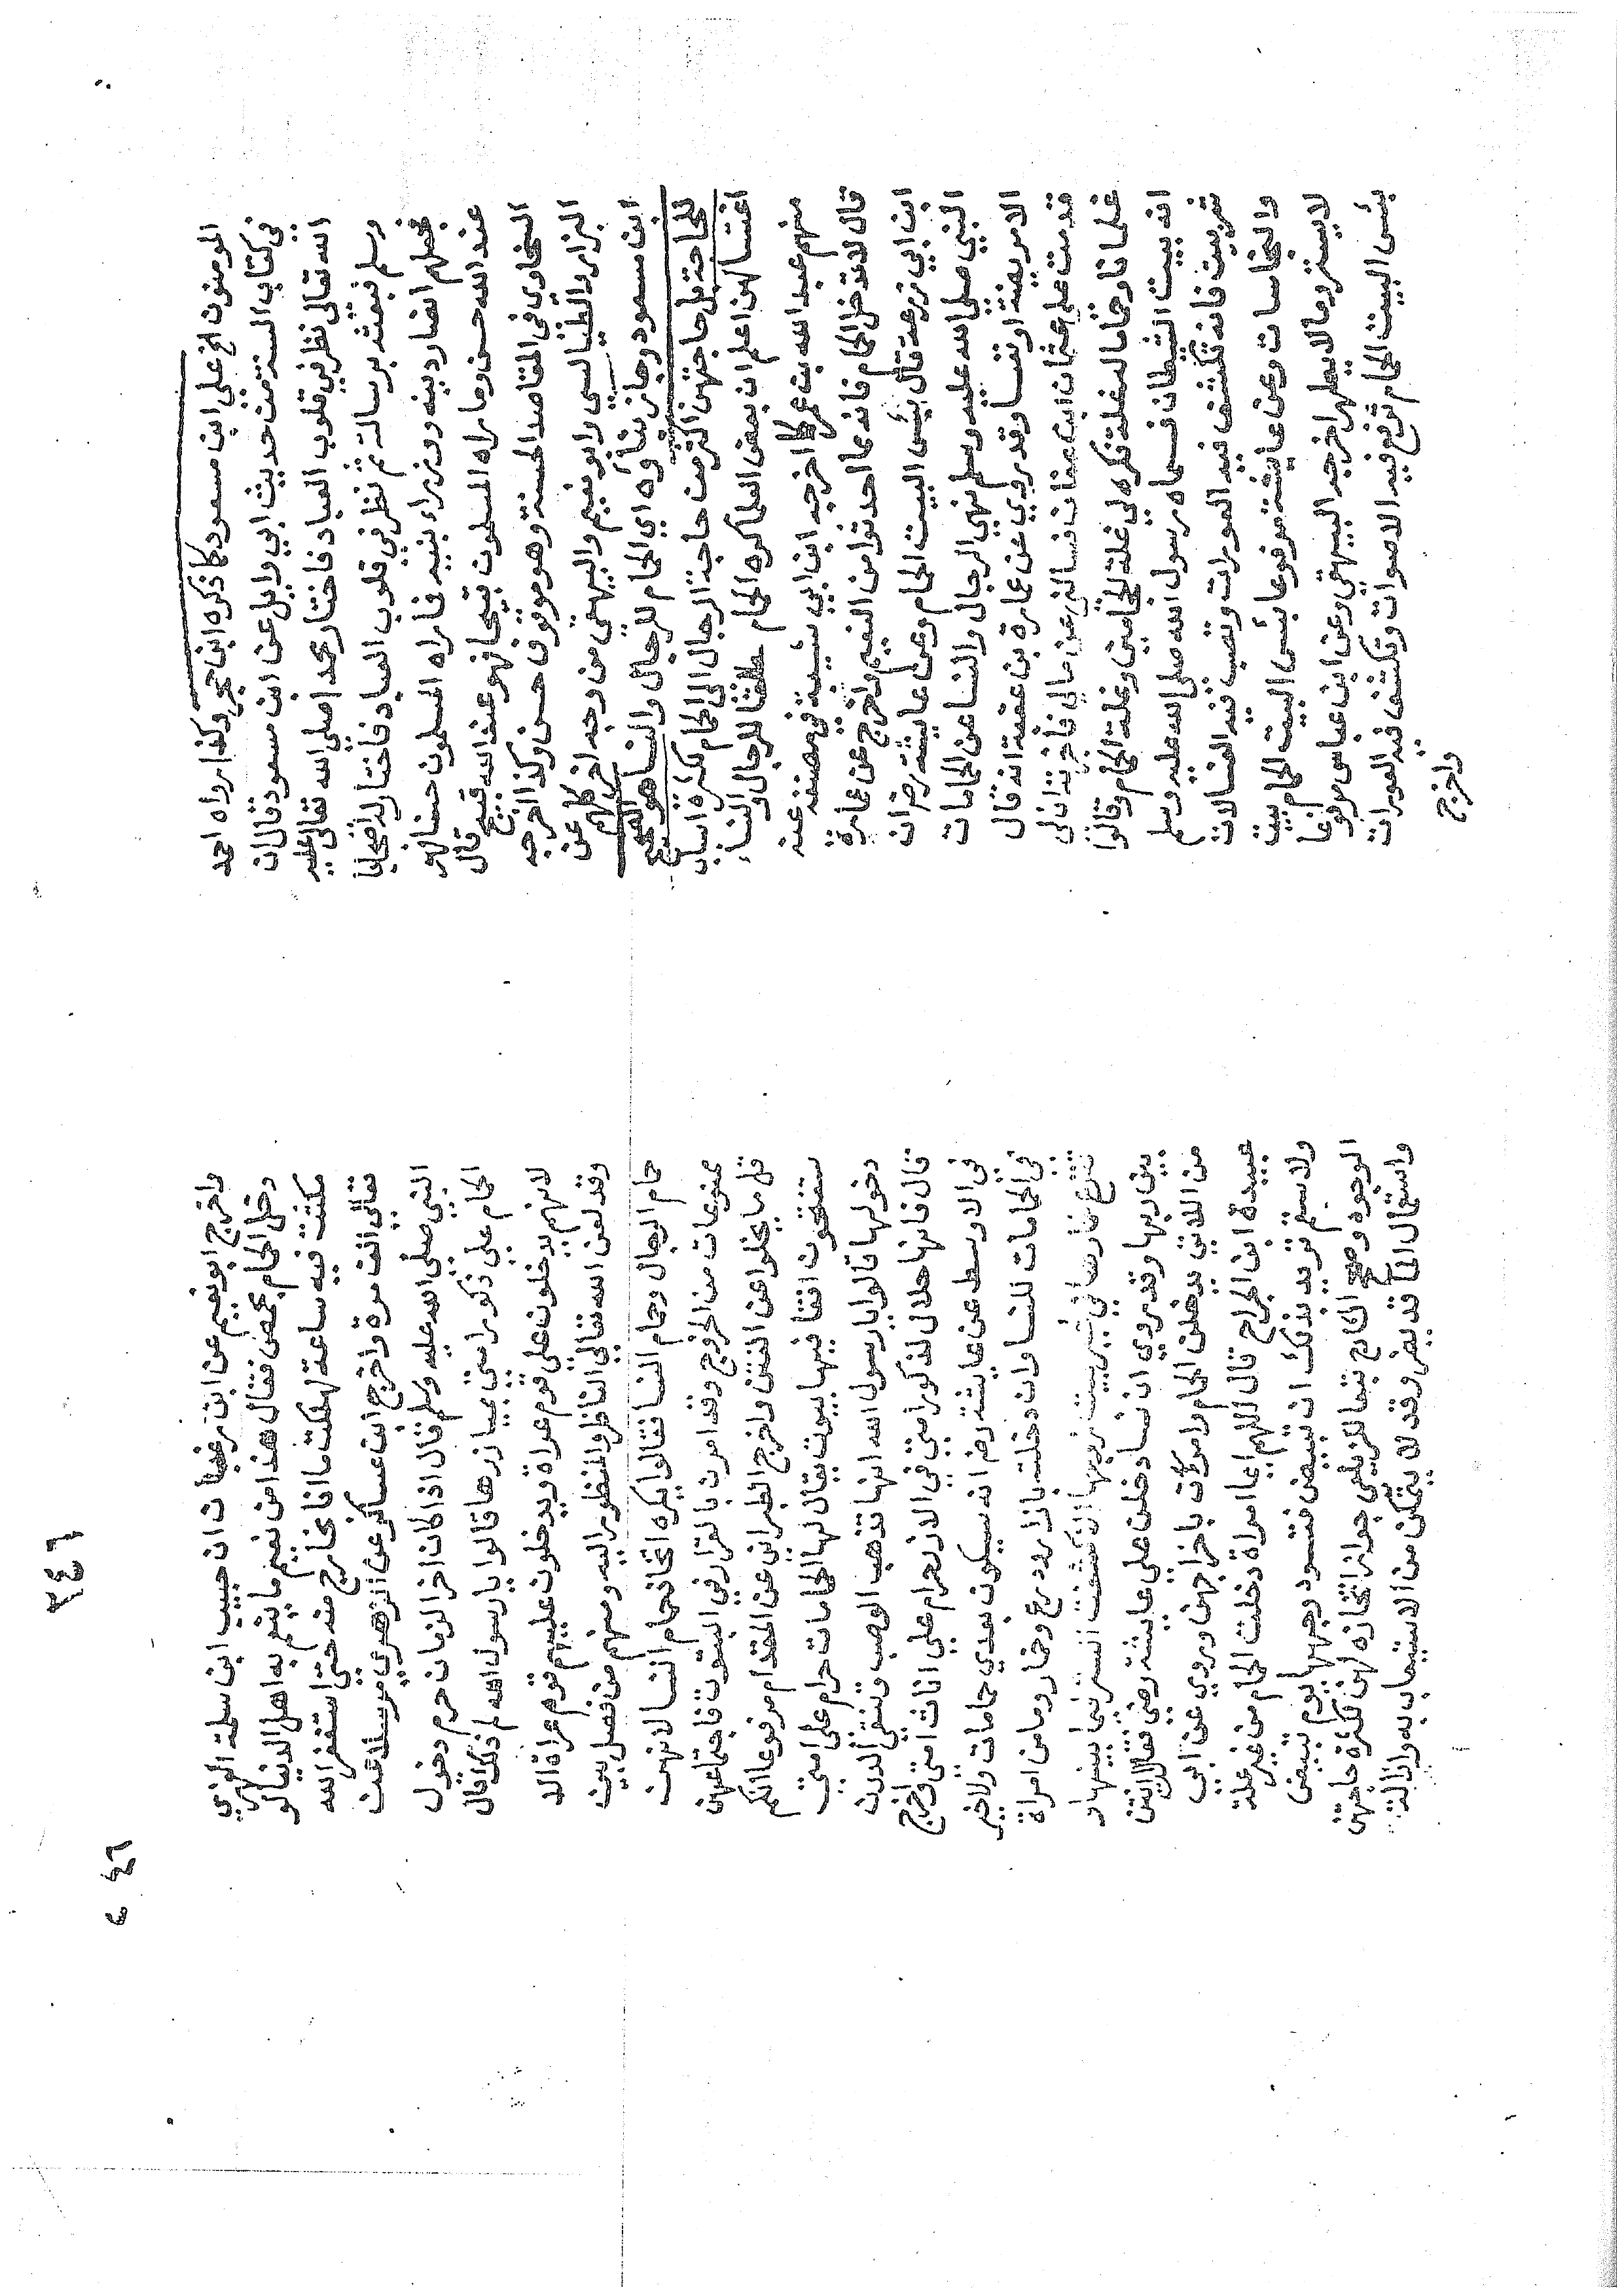 المومنون الخ على ابن مسعود كما ذكره ابن حجر وكذا رواه احمد
في كتاب السنة من حديث ابي وايل عن ابن مسعود قال ان
الله تعالى نظر في قلوب العباد فاختار محمدا صلى الله تعالى عليه
وسلم فبعثه برسالته ثم نظر في قلوب العباد فاختار له اصحابا
فجعلهم انصار دينه ووزراء نبيه فما راه المسلمون حسنا فهو
عند الله حسن وما راه المسلمون قبيحا فهو عند الله قبيح قال
السخاوي في المقاصد الحسنة وهو موقوف حسن وكذا اخرجه
البزار والطيالسي وابو نعيم والبيهقي من وجه اخر كلهم عن
ابن مسعود وجاز بناؤه اي الحمام للرجال والنسا هو الصحيح
للحاجة بل حاجتهن اكثر من حاجة الرجال الى الحمام لكثرة اسباب
اغتسالهن اعلم ان بعض العلما كره الحمام مطلقا للرجال والنساء
منهم عبد الله بن عمر كما اخرجه ابن ابي شيبة في مصنفه عنه
قال لا تدخل الحمام فانه مما احدثوا من النعيم واخرج عن عمارة
ابن ابي زرعة قال بئس البيت الحمام وعن عايشة رضي ان
النبي صلى الله عليه وسلم نهى الرجال والنسا عن الحمامات
الا مريضة او نفسا وقد روي عن عمارة بن عقبة انه قال
قدمت على عثمان ابن عفان فسالني عن مالي فاخبرته ان لي
غلمانا وحماما له غلة فكره لي غلة الحجامين وغلة الحمام وقالوا
انه بيت الشيطان فسماه رسول الله صلى الله عليه وسلم
شر بيت فانه تكشف فيه العورات وتصب فيه الغسالات
والنجاسات وعن عايشة مرفوعا بئس البيت الحمام بيت
لا يستر وما لا يطهر اخرجه البيهقي وعن ابن عباس مرفوعا
بئس البيت الحمام ترفع فيه الاصوات وتكشف فيه العورات
واخرج
واخرج ابو نعيم عن ابن ان حبيب ابن سلمة الفهري
دخل الحمام بحمص فقال هذا من نعيم ما ينعم به اهل الدنيا لو
مكثت فيه ساعة لهلكت ما انا بخارج منه حتى استغفر الله
تعالى الف مرة واخرج ابن عساكر عن الزهري مرسلا عن
النبي صلى الله عليه وسلم قال اذا كان اخر الزمان حرم دخول
الحمام على ذكور امتي بميازرها قالوا يا رسول الله لم ذلك قال
لانهم يدخلون على قوم عراة ويدخلون عليهم قوم عراة الا
وقد لعن الله تعالى الناظر والمنظور اليه ومنهم من فصل بين
حمام الرجال وحمام النسا فقالوا يكره اتخاذ حمام النسا لانهن
ممنوعات من الخروج وقد امرن بالقرار في البيوت فاجتماعهن
قل ما يخلو عن الفتن واخرج الطبراني عن المقدام مرفوعا انكم
ستفتحون افقا فيها بيوت يقال لها الحمامات حرام على امتي
دخولها قالوا يا رسول الله انها تذهب الوصب وتنقي الدرن
قال فانها حلال لذكور امتي في الازر حرام على اناث امتي واخرج
في الاوسط عن عايشة رض انه سيكون بعدي حمامات ولا خير
في الحمامات للنسا وان دخلته بازار ودرع وخمار وما من امراة
تنزع خمارها في غير بيت زوجها الا كشفت الستر فيما بينها و
بين ربها وقد روي ان نسا دخلن على عايشة رضي فقال انتن
من اللاتي يدخلن الحمام وامرت باخراجهن وروي عن ابي
عبيدة ابن الجراح قال اللهم ايما امراة دخلت الحمام من غير علة
ولا سقم تريد بذلك ان تبيض فتسود وجهها يوم تبيض
الوجوه وصحح الحاج تبعا للزيلعي جواز اتخاذه لهن لكثرة حاجتهن
واستعمال الماء قد يضر وقد لا يتمكن من الاستيعاب به وازالة
٢٤٦
٢٤٦